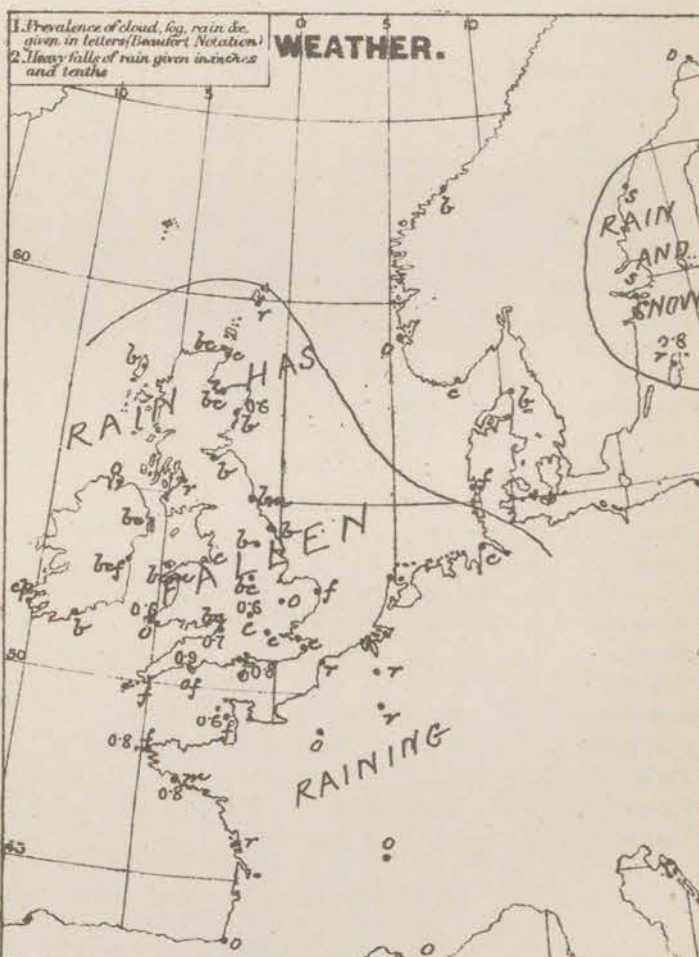 1. Prevalence of cloud, fog, rain &c. given in letters (Beaufort Notation)
2. Heavy falls of rain given in inches and tenths
WEATHER.
10 5 0 5 10
60
50
45
RAIN HAS
FALLEN IN
RAIN AND SNOW
RAINING
b
s
s
0.8
r
r
bc
c
b
bc
0.6
b
b
c
b
f
r
c
bcf
c
bc
f
0.6
0.6
o
b
o
0.7
c
c
c
0.9
0.8
r
r
f
of
r
0.6
o
0.8
f
m
0.8
r
o
o
o